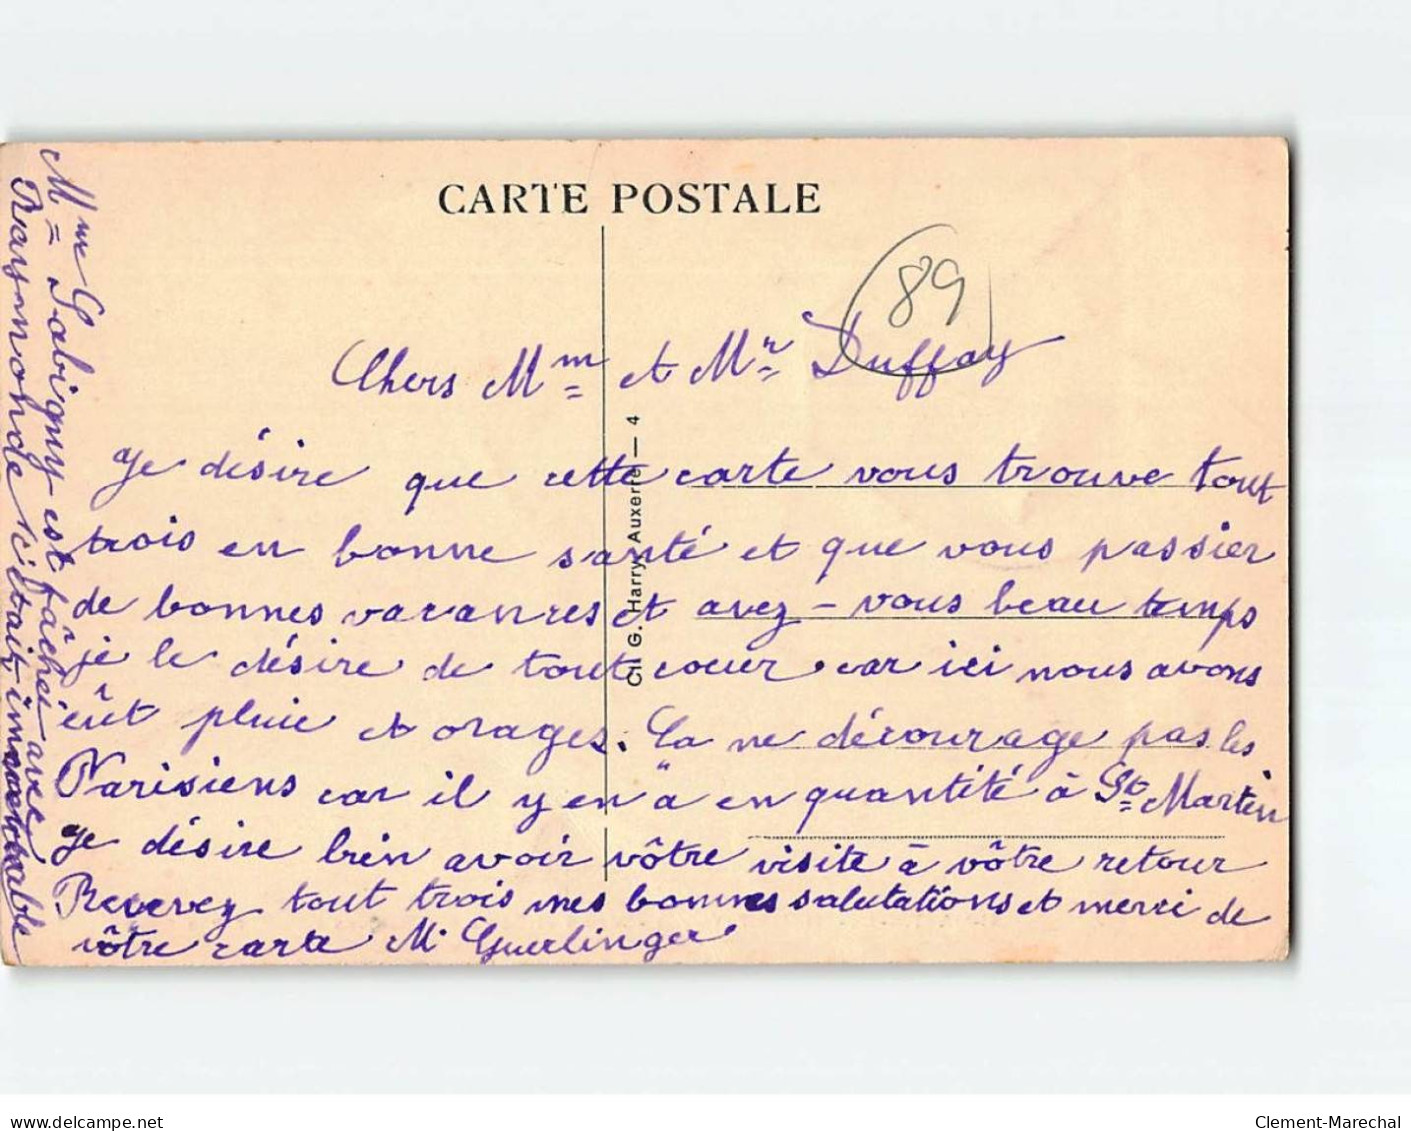 CARTE POSTALE
89
Chers Mm et Mr Duffay
Je désire que cette carte vous trouve tout
trois en bonne santé et que vous passier
de bonnes vacances et avez-vous beau temps
je le désire de tout coeur car ici nous avons
eût pluie et orages. Ca ne décourage pas les
Parisiens car il y en a en quantité à St Martin
Je désire bien avoir vôtre visite à vôtre retour
Recevez tout trois mes bonnes salutations et merci de
vôtre carte M. Guerlinger
Mme Sabigny est fâchée avec
Raymonde c'était immanquable
Cl. G. Harry, Auxerre — 4
delcampe.net
Clement-Marechal